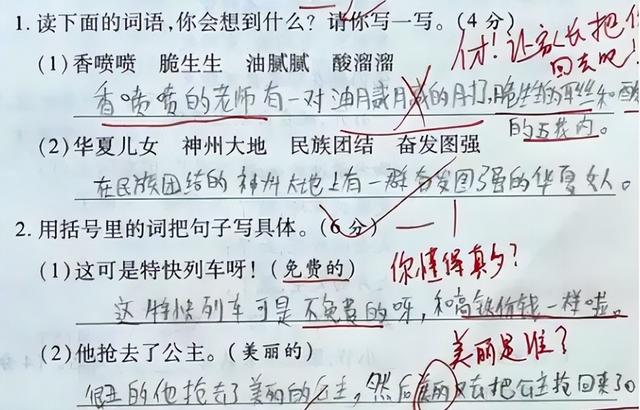 1. 读下面的词语,你会想到什么?请你写一写。(4分)
什!让家长把你
回去吧!
(1)香喷喷 脆生生 油腻腻 酸溜溜
香喷喷的老师有一对油腻腻的月打,脆生生的耳丝和酸
的五花肉。
(2)华夏儿女 神州大地 民族团结 奋发图强
在民族团结的神州大地上有一群奋发图强的华夏女人。
2. 用括号里的词把句子写具体。(6分) 一1
(1)这可是特快列车呀!(免费的) 你懂得真多?
这特快列车可是不免费的呀,和高铁价钱一样啦。
(2)他抢去了公主。(美丽的) 美丽是谁?
很丑的他抢去了美丽的公主,然后美丽又去把公主抢回来了